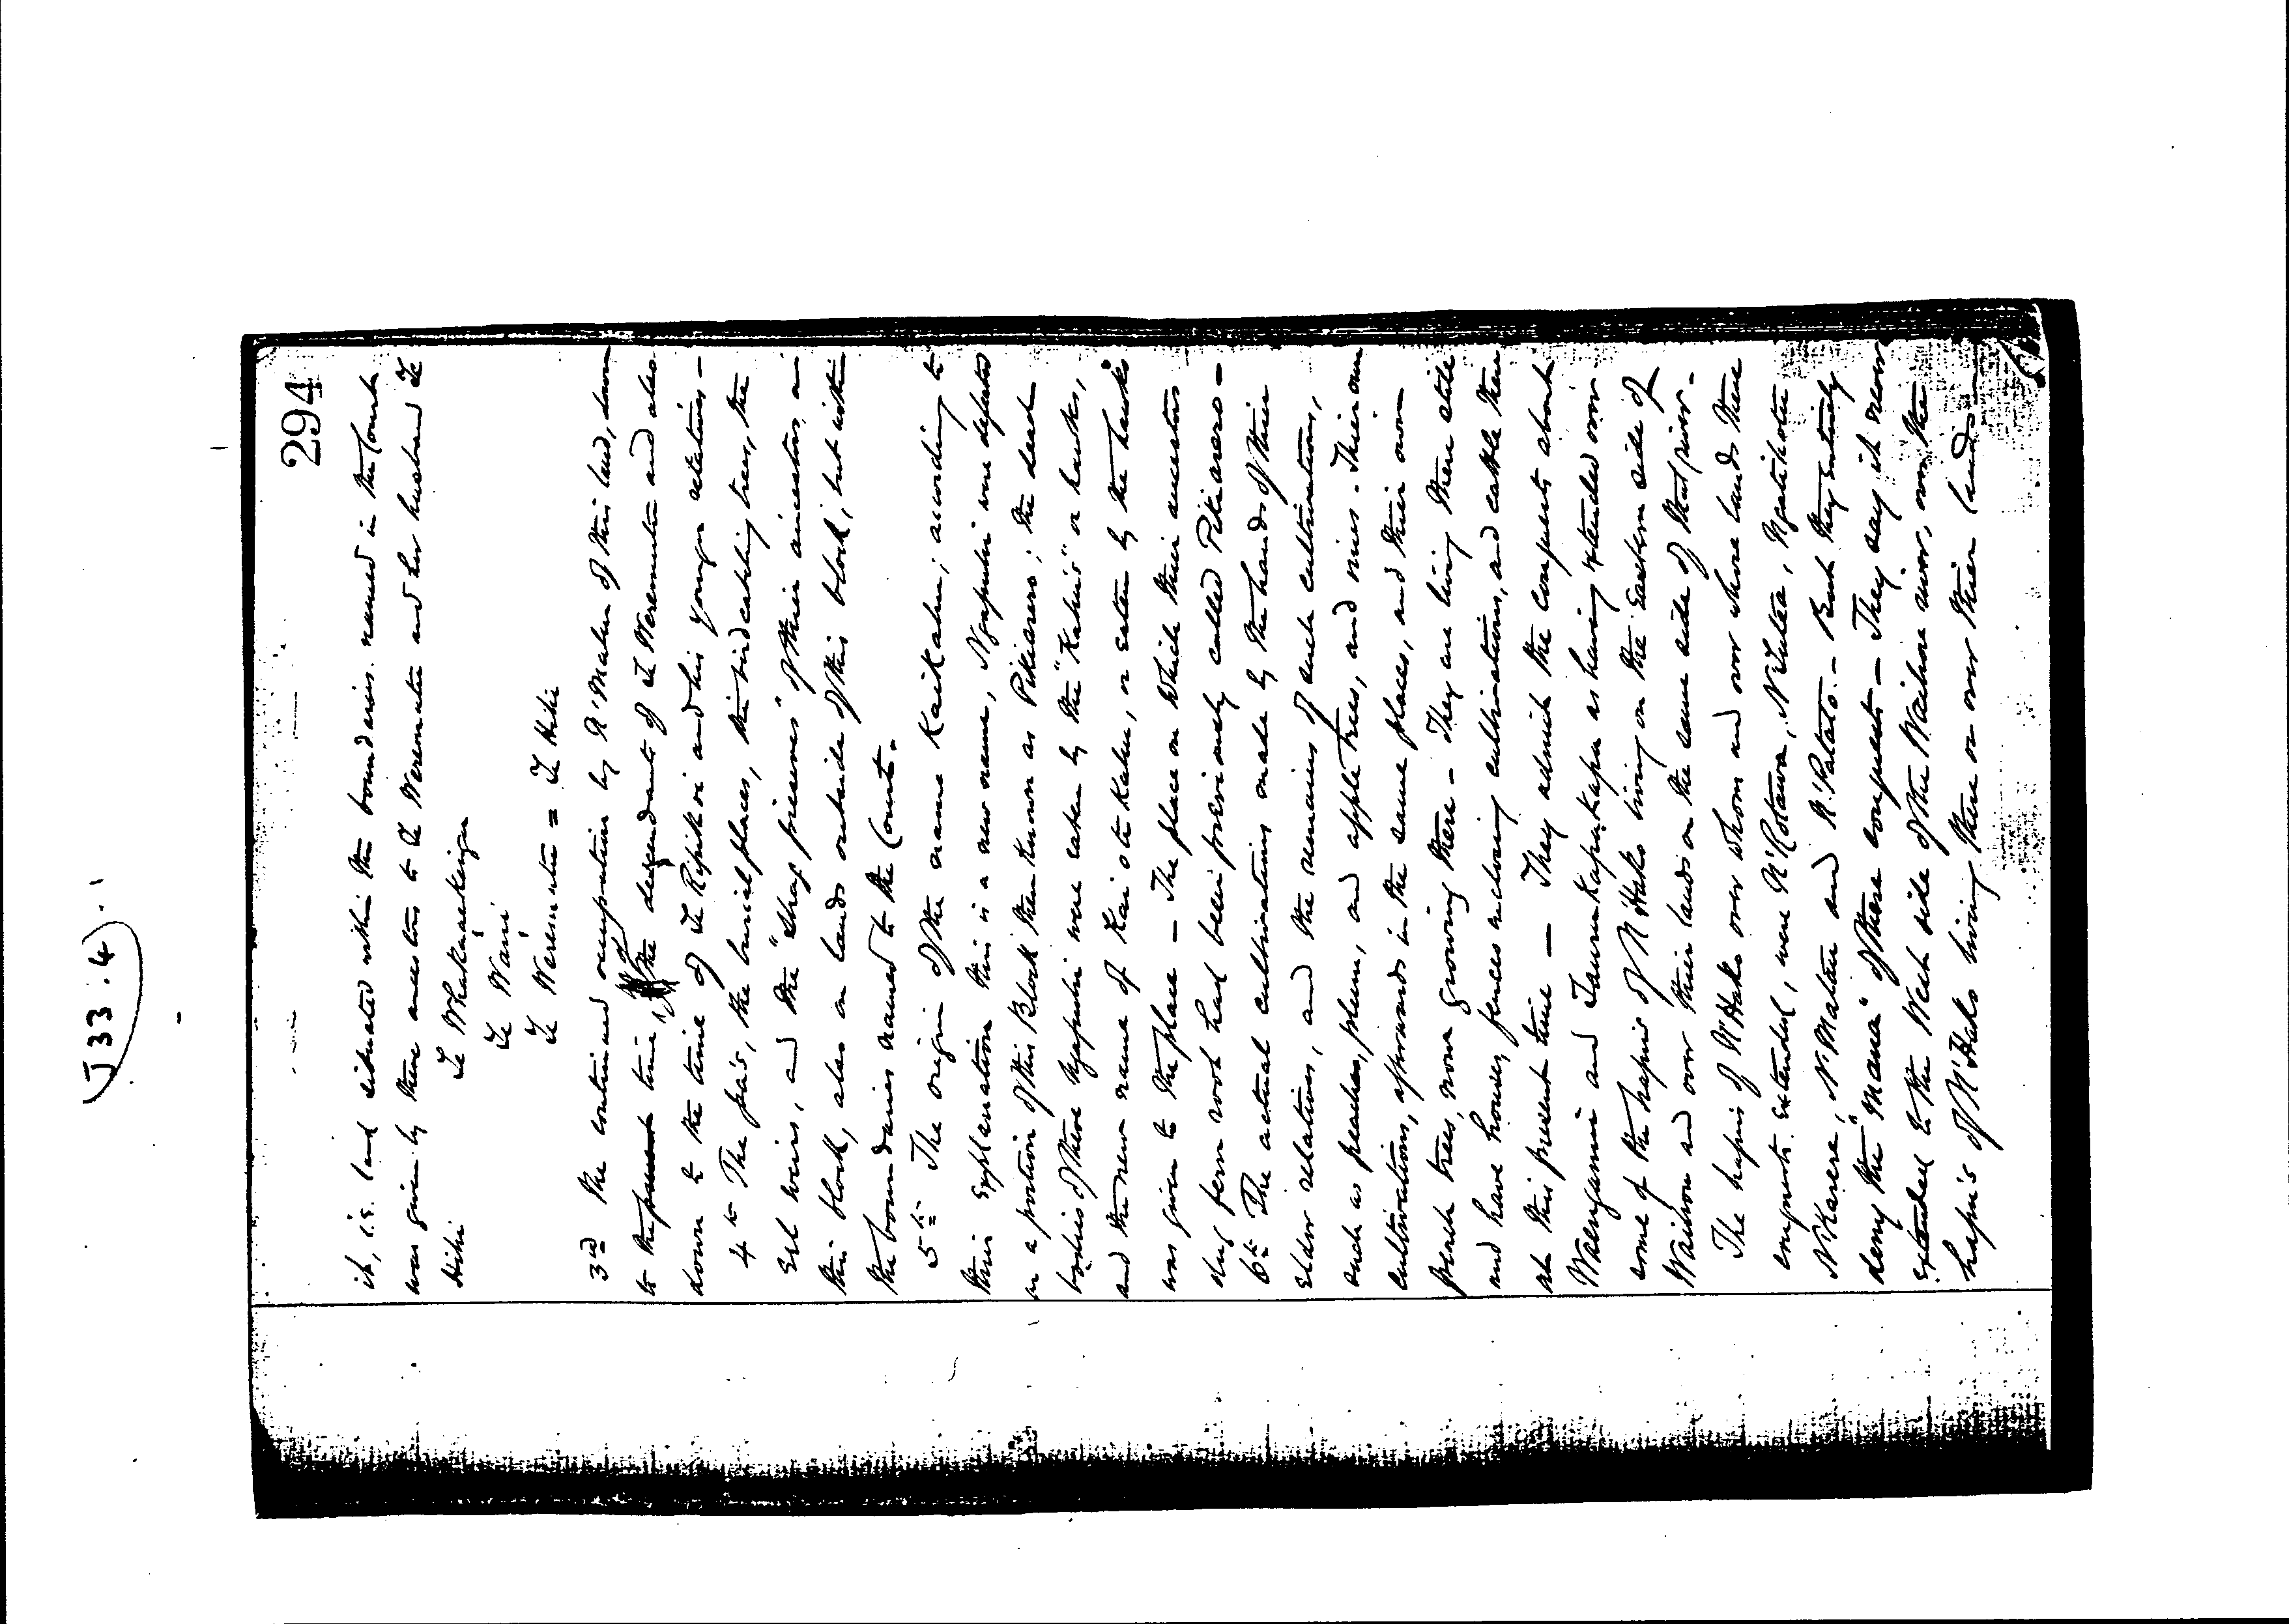 (J 33.4)
294
it, i.e. land situated within the boundaries named in the Court
was given by these ancestors to Te Weremutu and her husband Te
Hihi
Te Whakamaking
Te Wairi
Te Weremutu = Te Hihi
3rd The continued occupation by N'Mahu of this land, down
to the present time of the descendants of Te Weremutu and also
down to the time of Te and his younger relatives -
4th The pa's, the burial places, the bird catching trees, the
Eel weirs, and the " preserves" of their ancestors, on
this block, also on lands outside of this block, but within
the boundaries named to the Court.
5th The origin of the name Kaikahu; according to
their Explanation this is a new name, Ngapuhi were defeated
in a portion of this Block then known as Pikiarero; the dead
bodies of these Ngapuhi were eaten by the "Kahus" or hawks,
and the new name of Kai ote Kahu, or eaten by the hawks
was given to the place - The place on which their ancestors
dug fern root had been previously called Pikiarero -
6th The actual cultivations made by the hands of their
Elder relatives, and the remains of such cultivations,
such as peaches, plum, and apple trees, and vines. Their own
cultivations, afterwards in the same places, and their own
peach trees, now growing there - They are living there still
and have houses, fences enclosing cultivations, and cattle there
at this present time - They admit the conquests about
Waengawa and Taurukapakapa as having extended over
some of the hapus of N'Hako living on the Eastern side of
Waihou and over their lands on the same side of that river -
The hapus of N'Hako over whom and over whose lands these
conquests Extended, were N'Rotawa, N'Tutea, Ngatikotu
N'Karere, N'Matau and N'Patato. - But they entirely
deny the "mana" of these conquests - They say it never
extended to the West side of the Waihou river, over the
hapus of N'Hako living there or over their lands